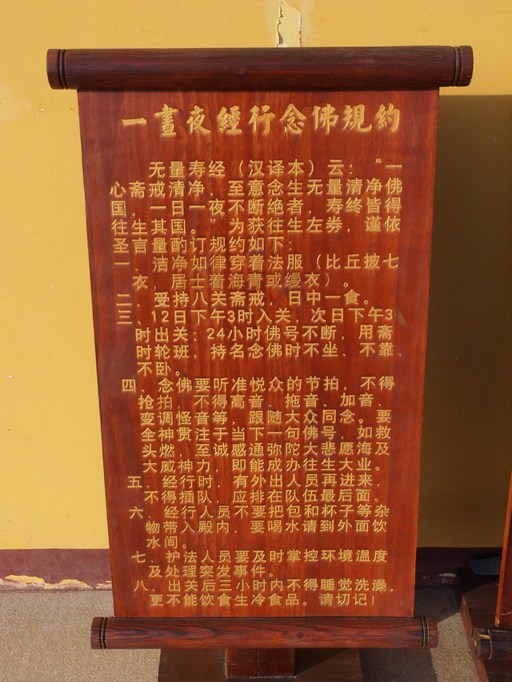 一晝夜經行念佛規約
无量寿经（汉译本）云：“一
心斋戒清净，至意念生无量清净佛
国，一日一夜不断绝者，寿终皆得
往生其国。”为获往生左券，谨依
圣言量酌订规约如下：
一、洁净如律穿着法服（比丘披七
衣，居士着海青或缦衣）。
二、受持八关斋戒，日中一食。
三、12日下午3时入关，次日下午3
时出关；24小时佛号不断，用斋
时轮班，持名念佛时不坐、不靠、
不卧。
四、念佛要听准悦众的节拍，不得
抢拍，不得高音、拖音、加音、
变调怪音等，跟随大众同念。要
全神贯注于当下一句佛号，如救
头燃，至诚感通弥陀大悲愿海及
大威神力，即能成办往生大业。
五、经行时，有外出人员再进来，
不得插队，应排在队伍最后面。
六、经行人员不要把包和杯子等杂
物带入殿内，要喝水请到外面饮
水间。
七、护法人员要及时掌控环境温度
及处理突发事件。
八、出关后三小时内不得睡觉洗澡，
更不能饮食生冷食品。请切记！